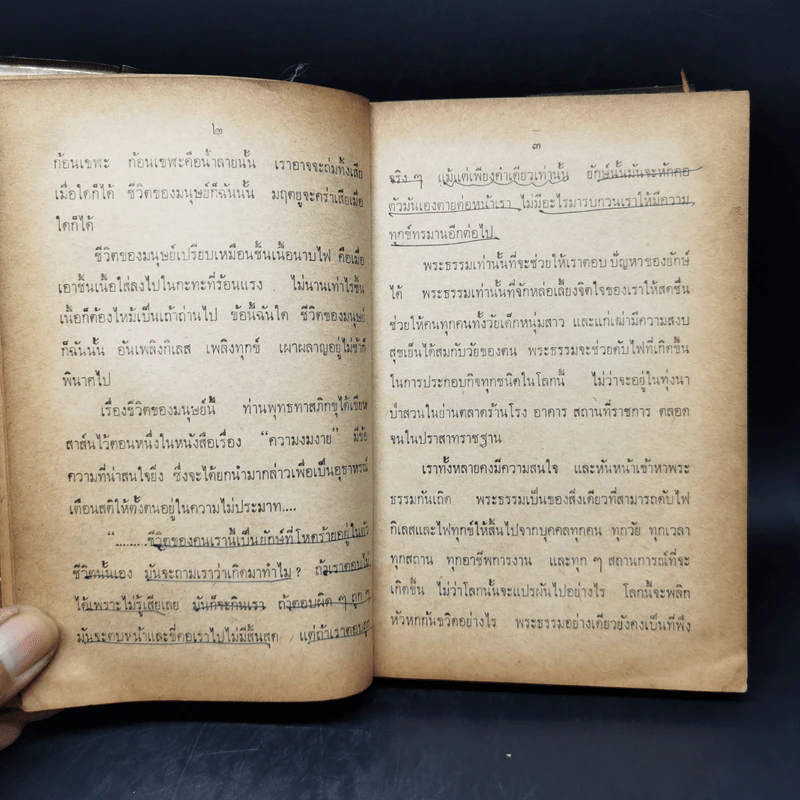 ๒
ก้อนเขฬะ ก้อนเขฬะคือน้ำลายนั้น เราอาจจะถ่มทิ้งเสีย
เมื่อใดก็ได้ ชีวิตของมนุษย์ก็ฉันนั้น มฤตยูจะคร่าเสียเมื่อ
ใดก็ได้
ชีวิตของมนุษย์เปรียบเหมือนชิ้นเนื้อนาบไฟ คือเมื่อ
เอาชิ้นเนื้อใส่ลงไปในกะทะที่ร้อนแรง ไม่นานเท่าไรชิ้น
เนื้อก็ต้องไหม้เป็นเถ้าถ่านไป ข้อนี้ฉันใด ชีวิตของมนุษย์
ก็ฉันนั้น อันเพลิงกิเลส เพลิงทุกข์ เผาผลาญอยู่ไม่ช้าก็
พินาศไป
เรื่องชีวิตของมนุษย์นี้ ท่านพุทธทาสภิกขุได้เขียน
สาส์นไว้ตอนหนึ่งในหนังสือเรื่อง “ความงมงาย” มีข้อ
ความที่น่าสนใจยิ่ง ซึ่งจะได้ยกนำมากล่าวเพื่อเป็นอุธาหรณ์
เตือนสติให้ตั้งตนอยู่ในความไม่ประมาท....
“........ชีวิตของคนเรานี้เป็นยักษ์ที่โหดร้ายอยู่ในตัว
ชีวิตนั้นเอง มันจะถามเราว่าเกิดมาทำไม? ถ้าเราตอบไม่
ได้เพราะไม่รู้เสียเลย มันก็จะกินเรา ถ้าตอบผิด ๆ ถูก ๆ
มันจะตบหน้าและขี่คอเราไปไม่มีสิ้นสุด แต่ถ้าเราตอบถูก
๓
จริง ๆ แม้แต่เพียงคำเดียวเท่านั้น ยักษ์นั้นมันจะหักคอ
ตัวมันเองตายต่อหน้าเรา ไม่มีอะไรมารบกวนเราให้มีความ
ทุกข์ทรมานอีกต่อไป
พระธรรมเท่านั้นที่จะช่วยให้เราตอบปัญหาของยักษ์
ได้ พระธรรมเท่านั้นที่จักหล่อเลี้ยงจิตใจของเราให้สดชื่น
ช่วยให้คนทุกคนทั้งวัยเด็กหนุ่มสาว และแก่เฒ่ามีความสงบ
สุขเย็นได้สมกับวัยของตน พระธรรมจะช่วยดับไฟที่เกิดขึ้น
ในการประกอบกิจทุกชนิดในโลกนี้ ไม่ว่าจะอยู่ในทุ่งนา
ป่าสวนในย่านตลาดร้านโรง อาคาร สถานที่ราชการ ตลอด
จนในปราสาทราชฐาน
เราทั้งหลายคงมีความสนใจ และหันหน้าเข้าหาพระ
ธรรมกันเถิด พระธรรมเป็นของสิ่งเดียวที่สามารถดับไฟ
กิเลสและไฟทุกข์ให้สิ้นไปจากบุคคลทุกคน ทุกวัย ทุกเวลา
ทุกสถาน ทุกอาชีพการงาน และทุก ๆ สถานการณ์ที่จะ
เกิดขึ้น ไม่ว่าโลกนั้นจะแปรผันไปอย่างไร โลกนี้จะพลิก
หัวหกก้นขวิดอย่างไร พระธรรมอย่างเดียวยังคงเป็นที่พึ่ง